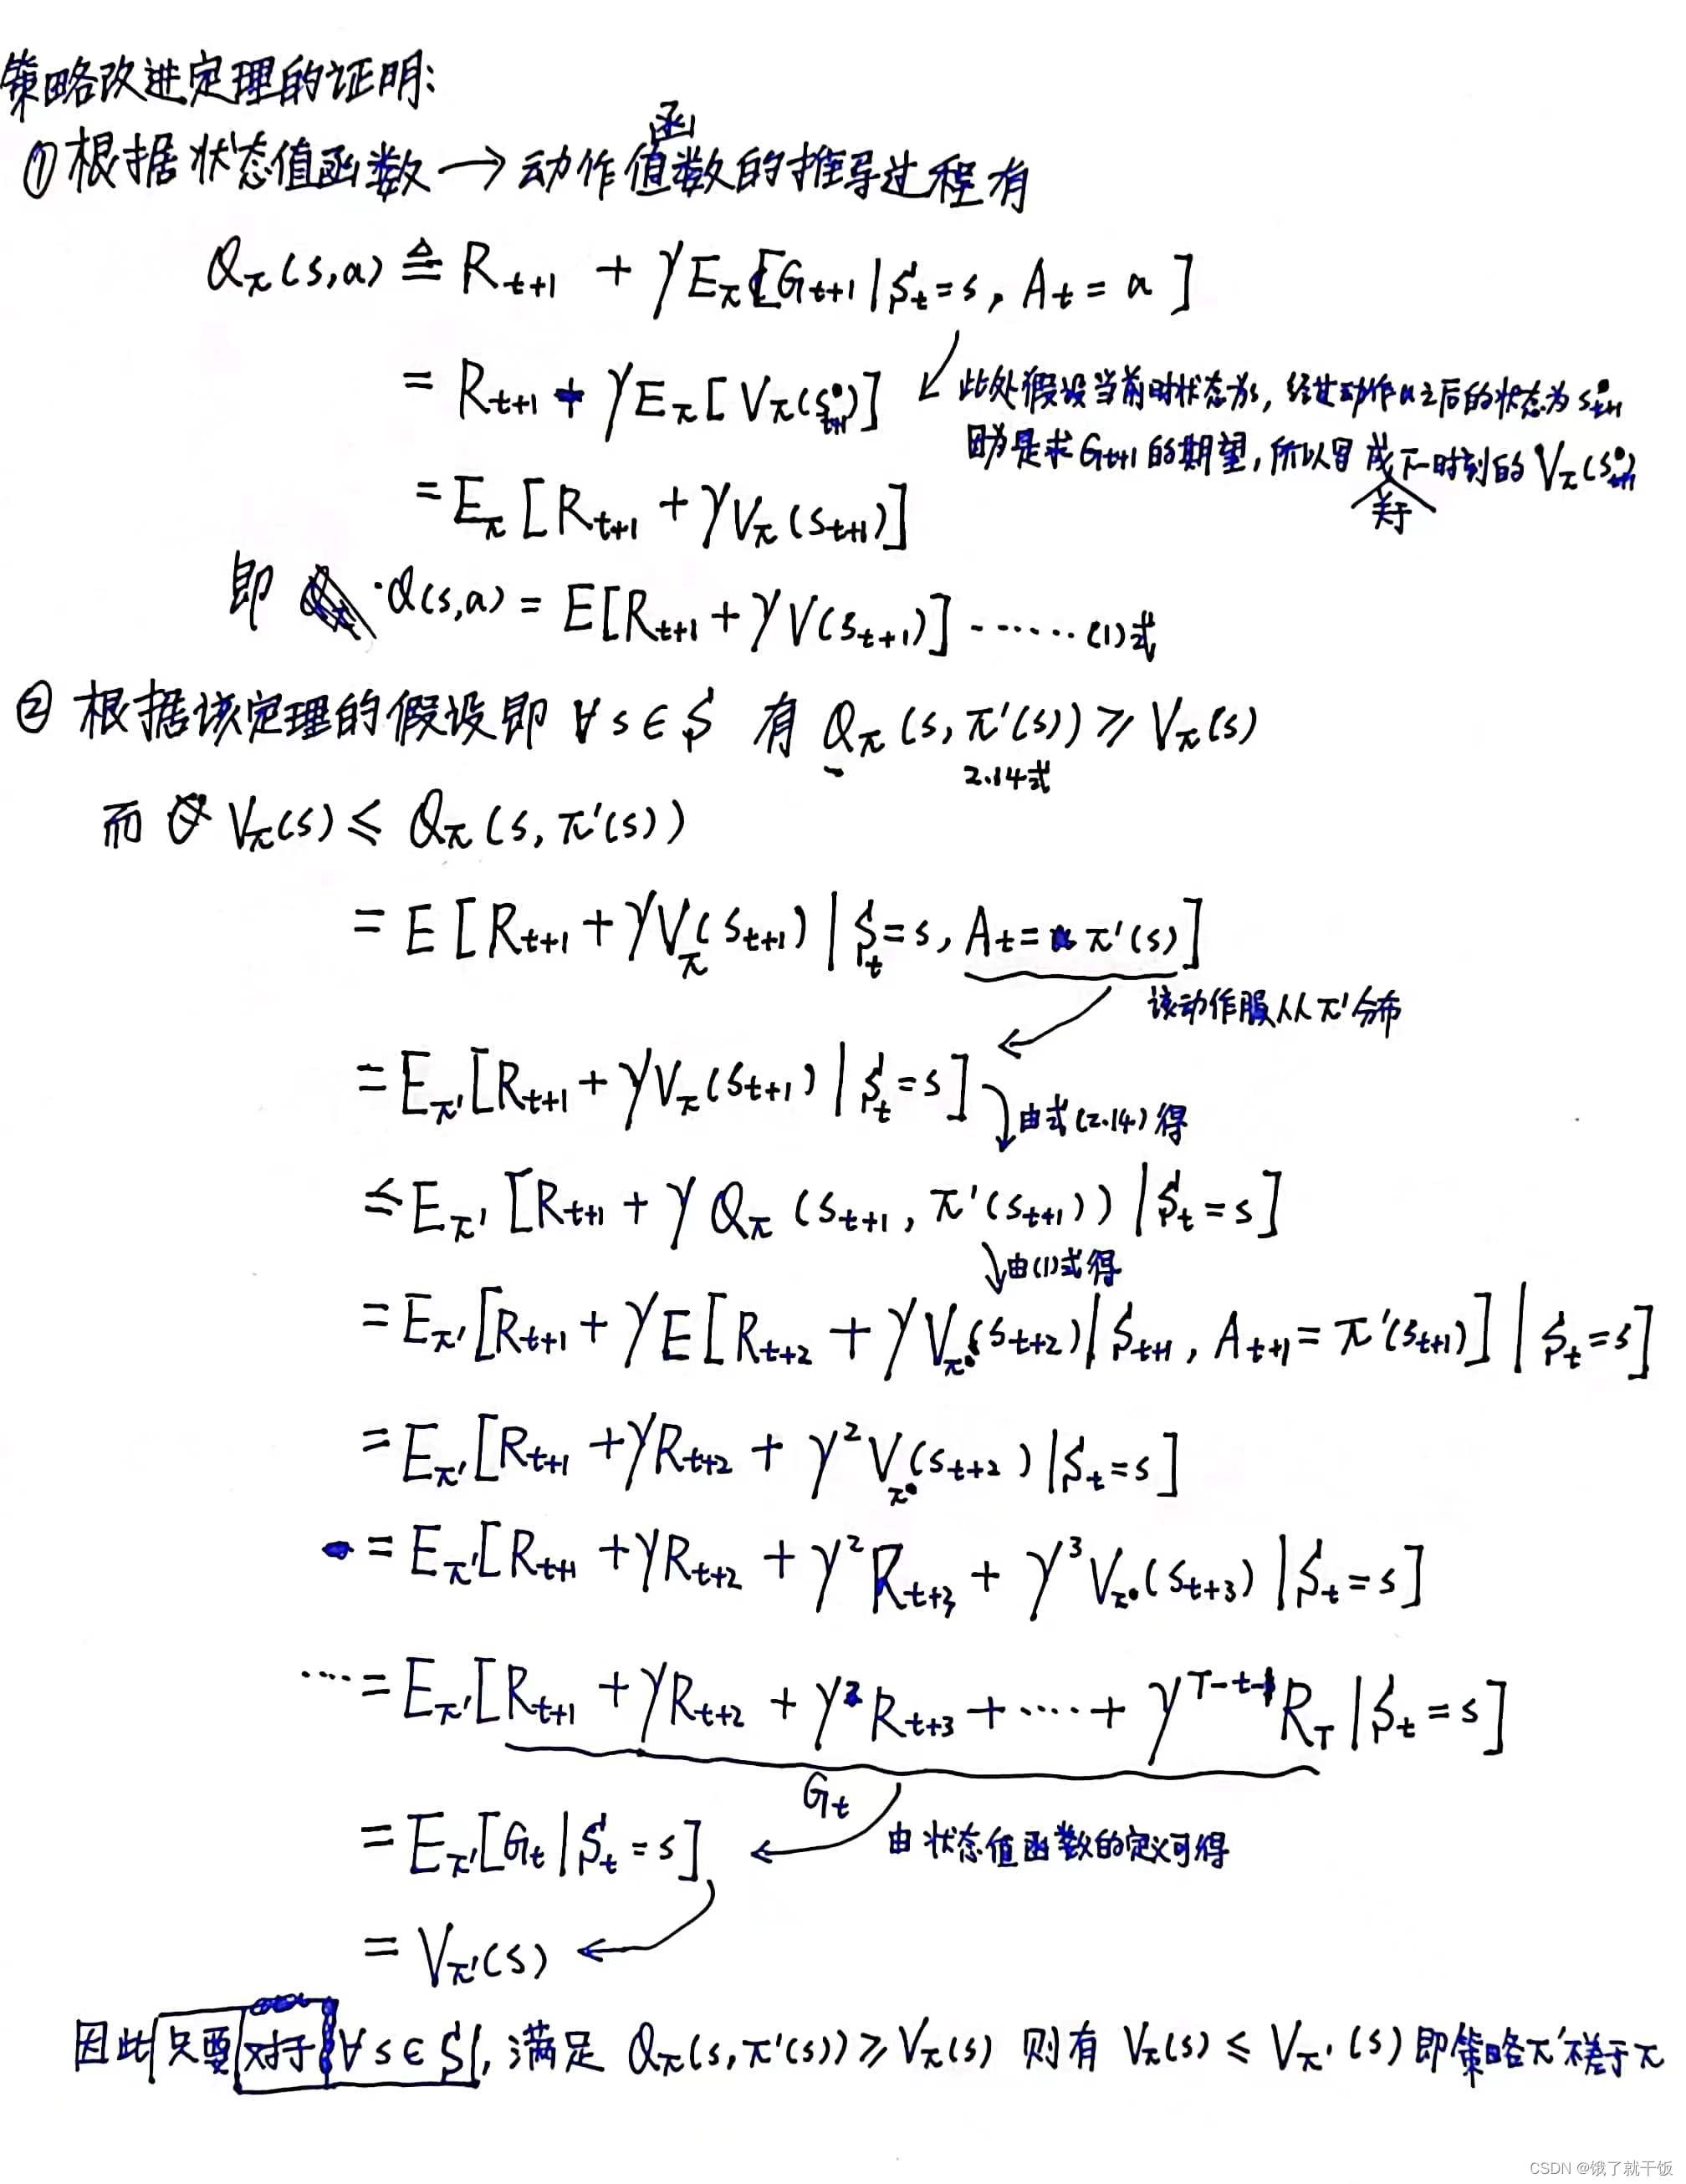 策略改进定理的证明:
① 根据状态值函数 → 动作值函数的推导过程有
Qπ(s,a) ≜ R_{t+1} + γEπ[G_{t+1} | S_t = s, A_t = a]
= R_{t+1} + γEπ[Vπ(s_{t+1})]
此处假设当前时状态为s, 经过动作a之后的状态为s_{t+1}
因为是求G_{t+1}的期望, 所以写成关于下一时刻的Vπ(s_{t+1})
= Eπ[R_{t+1} + γVπ(s_{t+1})]
即 Q(s,a) = E[R_{t+1} + γV(s_{t+1})] ······ (1)式
② 根据该定理的假设即 ∀s∈S 有 Qπ(s, π'(s)) ≥ Vπ(s)
2.14式
而 Vπ(s) ≤ Qπ(s, π'(s))
= E[R_{t+1} + γVπ(s_{t+1}) | S_t = s, A_t = π'(s)]
该动作服从π'分布
= E_{π'}[R_{t+1} + γVπ(s_{t+1}) | S_t = s]
由式(2.14)得
≤ E_{π'}[R_{t+1} + γQπ(s_{t+1}, π'(s_{t+1})) | S_t = s]
由(1)式得
= E_{π'}[R_{t+1} + γE[R_{t+2} + γVπ(s_{t+2}) | S_{t+1}, A_{t+1} = π'(s_{t+1})] | S_t = s]
= E_{π'}[R_{t+1} + γR_{t+2} + γ²Vπ(s_{t+2}) | S_t = s]
= E_{π'}[R_{t+1} + γR_{t+2} + γ²R_{t+3} + γ³Vπ(s_{t+3}) | S_t = s]
···· = E_{π'}[R_{t+1} + γR_{t+2} + γ²R_{t+3} + ···· + γ^{T-t-1}R_T | S_t = s]
G_t
= E_{π'}[G_t | S_t = s]
由状态值函数的定义可得
= V_{π'}(s)
因此只要对于∀s∈S, 满足 Qπ(s, π'(s)) ≥ Vπ(s) 则有 Vπ(s) ≤ V_{π'}(s) 即策略π'不差于π
CSDN @饿了就干饭